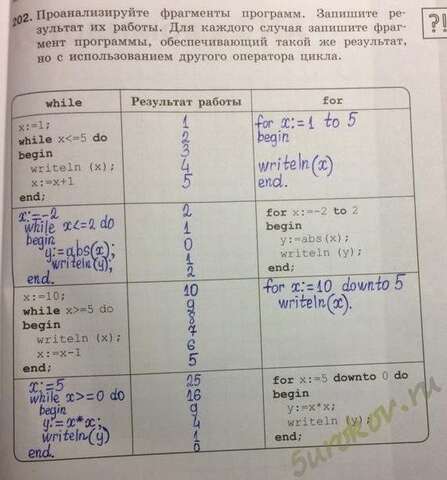 202. Проанализируйте фрагменты программ. Запишите ре-
зультат их работы. Для каждого случая запишите фраг-
мент программы, обеспечивающий такой же результат,
но с использованием другого оператора цикла.
?!
while
Результат работы
for
x:=1;
while x<=5 do
begin
writeln (x);
x:=x+1
end;
1
2
3
4
5
for x:=1 to 5
begin
writeln(x)
end.
x:=-2
while x<=2 do
begin
y:=abs(x);
writeln(y);
end.
2
1
0
1
2
for x:=-2 to 2
begin
y:=abs(x);
writeln (y);
end;
x:=10;
while x>=5 do
begin
writeln (x);
x:=x-1
end;
10
9
8
7
6
5
for x:=10 downto 5
writeln(x).
x:=5
while x>=0 do
begin
y:=x*x;
writeln(y)
end.
25
16
9
4
1
0
for x:=5 downto 0 do
begin
y:=x*x;
writeln (y);
end;
5urokov.ru